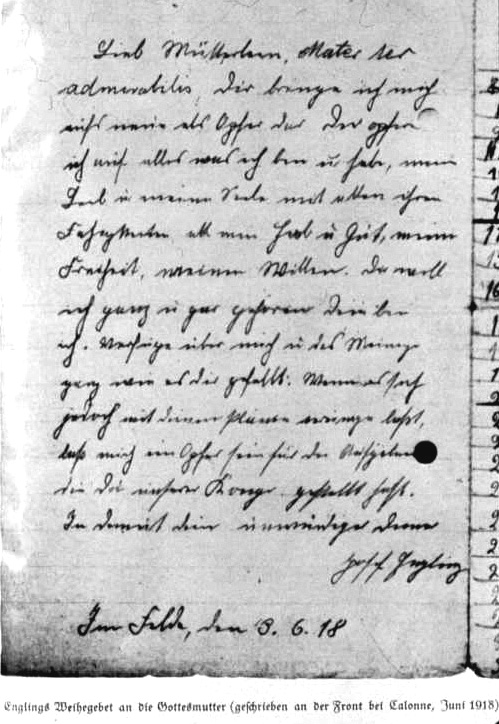 Lieb Mütterlein, Mater ter
admirabilis, Dir bringe ich mich
aufs neue als Opfer dar. Dir opfere
ich auf alles was ich bin u habe, mein
Leib u meine Seele mit allen ihren
Fähigkeiten, all mein Hab u Gut, meine
Freiheit, meinen Willen. Du woll
ich ganz u gar gehören Dein bin
ich. Verfüge über mich u das Meinige
ganz wie es dir gefällt. Wenn es sich
jedoch mit deinen Plänen vereinigen läßt,
laß mich ein Opfer sein für die Aufgaben
die Du unserer Kongr. gestellt hast.
In Demut dein unwürdiger Diener
Josef Engling
Im Felde, den 3. 6. 18
Englings Weihegebet an die Gottesmutter (geschrieben an der Front bei Calonne, Juni 1918)